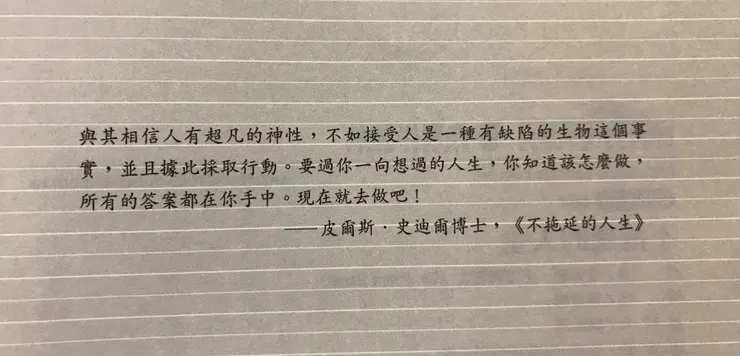 與其相信人有超凡的神性，不如接受人是一種有缺陷的生物這個事
實，並且據此採取行動。要過你一向想過的人生，你知道該怎麼做，
所有的答案都在你手中。現在就去做吧！
——皮爾斯．史迪爾博士，《不拖延的人生》